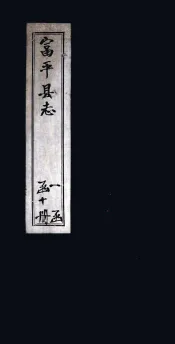 富平县志
一函
函十册